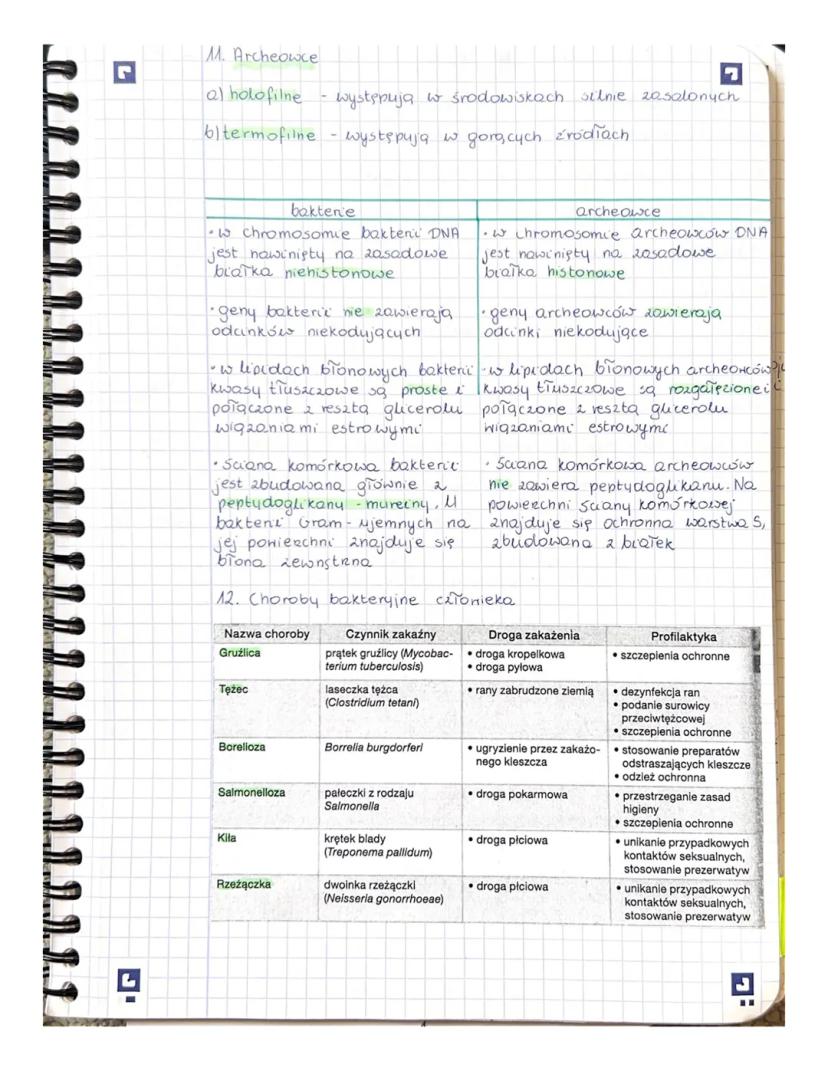 11. Archeowce
a) holofilne - występują w środowiskach silnie zasolonych
b) termofilne - występują w gorących źródłach
bakterie
• w chromosomie bakterii DNA
jest nawinięty na zasadowe
białka niehistonowe
• geny bakterii nie zawierają
odcinków niekodujących
• w lipidach błonowych bakterii
kwasy tłuszczowe są proste i
połączone z resztą glicerolu
wiązaniami estrowymi
• Ściana komórkowa bakterii
jest zbudowana głównie z
peptydoglikany - mureiny. U
bakterii Gram-ujemnych na
jej powierzchni znajduje się
błona zewnętrzna
archeowce
• w chromosomie archeowców DNA
jest nawinięty na zasadowe
białka histonowe
• geny archeowców zawierają
odcinki niekodujące
• w lipidach błonowych archeowców
kwasy tłuszczowe są rozgałęzione i
połączone z resztą glicerolu
wiązaniami estrowymi
• Ściana komórkowa archeowców
nie zawiera peptydoglikanu. Na
powierzchni ściany komórkowej
znajduje się ochronna warstwa S,
zbudowana z białek
12. Choroby bakteryjne człowieka
Nazwa choroby Czynnik zakaźny Droga zakażenia Profilaktyka
Gruźlica prątek gruźlicy (Mycobac- • droga kropelkowa • szczepienia ochronne
terium tuberculosis) • droga pyłowa
Tężec laseczka tężca • rany zabrudzone ziemią • dezynfekcja ran
(Clostridium tetani) • podanie surowicy
przeciwtężcowej
• szczepienia ochronne
Borelioza Borrelia burgdorferi • ugryzienie przez zakażo- • stosowanie preparatów
nego kleszcza odstraszających kleszcze
• odzież ochronna
Salmonelloza pałeczki z rodzaju • droga pokarmowa • przestrzeganie zasad
Salmonella higieny
• szczepienia ochronne
Kiła krętek blady • droga płciowa • unikanie przypadkowych
(Treponema pallidum) kontaktów seksualnych,
stosowanie prezerwatyw
Rzeżączka dwoinka rzeżączki • droga płciowa • unikanie przypadkowych
(Neisseria gonorrhoeae) kontaktów seksualnych,
stosowanie prezerwatyw